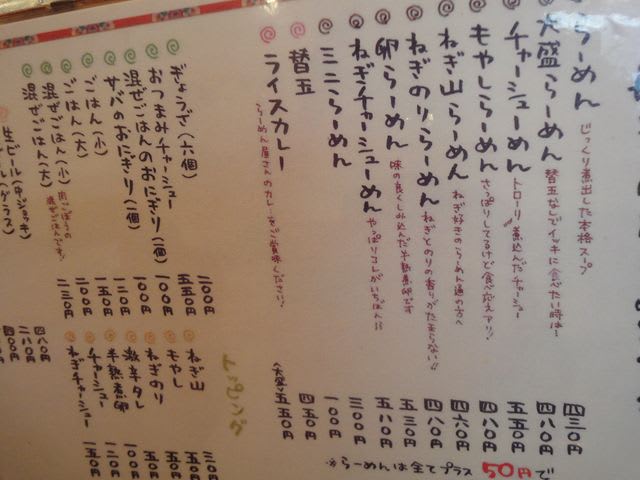 らーめん じっくり煮出した本格スープ 四三〇円
大盛らーめん 替玉なしでイッキに食べたい時は… 四八〇円
チャーシューめん トローリ煮込んだチャーシュー 五五〇円
もやしらーめん さっぱりしてるけど食べ応えアリ! 四八〇円
ねぎ山らーめん ねぎ好きのらーめん通の方へ 四六〇円
ねぎのりらーめん ねぎとのりの香りがたまらない!! 四八〇円
卵らーめん 味の良くしみ込んだ半熟煮卵です 五三〇円
ねぎチャーシューめん やっぱりコレがいちばん!! 五八〇円
ミニらーめん 三〇〇円
替玉 一〇〇円
ライスカレー らーめん屋さんのカレーをご賞味ください! 四五〇円
〈大盛〉五五〇円
※らーめんは全てプラス50円で
ぎょうざ(六個) 二〇〇円
おつまみチャーシュー 五五〇円
混ぜごはんのおにぎり(一個) 一〇〇円
サバのおにぎり(一個) 一〇〇円
ごはん(小) 一五〇円
ごはん(大) 二〇〇円
混ぜごはん(小) 二三〇円
混ぜごはん(大)
生ビール(中ジョッキ) 四八〇円
(グラス) 二八〇円
四〇〇円
トッピング
ねぎ山
もやし
ねぎのり
激辛タレ
半熟煮卵
チャーシュー
ねぎチャーシュー